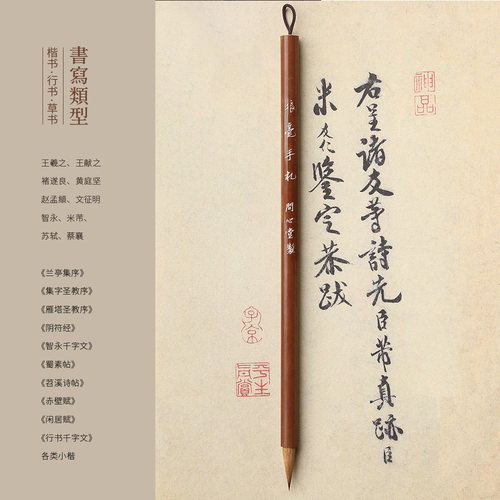 書寫類型
楷书·行书·草书
王羲之、王献之
褚遂良、黄庭坚
赵孟頫、文征明
智永、米芾、
苏轼、蔡襄
《兰亭集序》
《集字圣教序》
《雁塔圣教序》
《阴符经》
《智永千字文》
《蜀素帖》
《苕溪诗帖》
《赤壁赋》
《闲居赋》
《行书千字文》
各类小楷
狼毫手札 問心堂製
右呈諸友等詩先臣芾真跡臣
米友仁鑒定恭跋